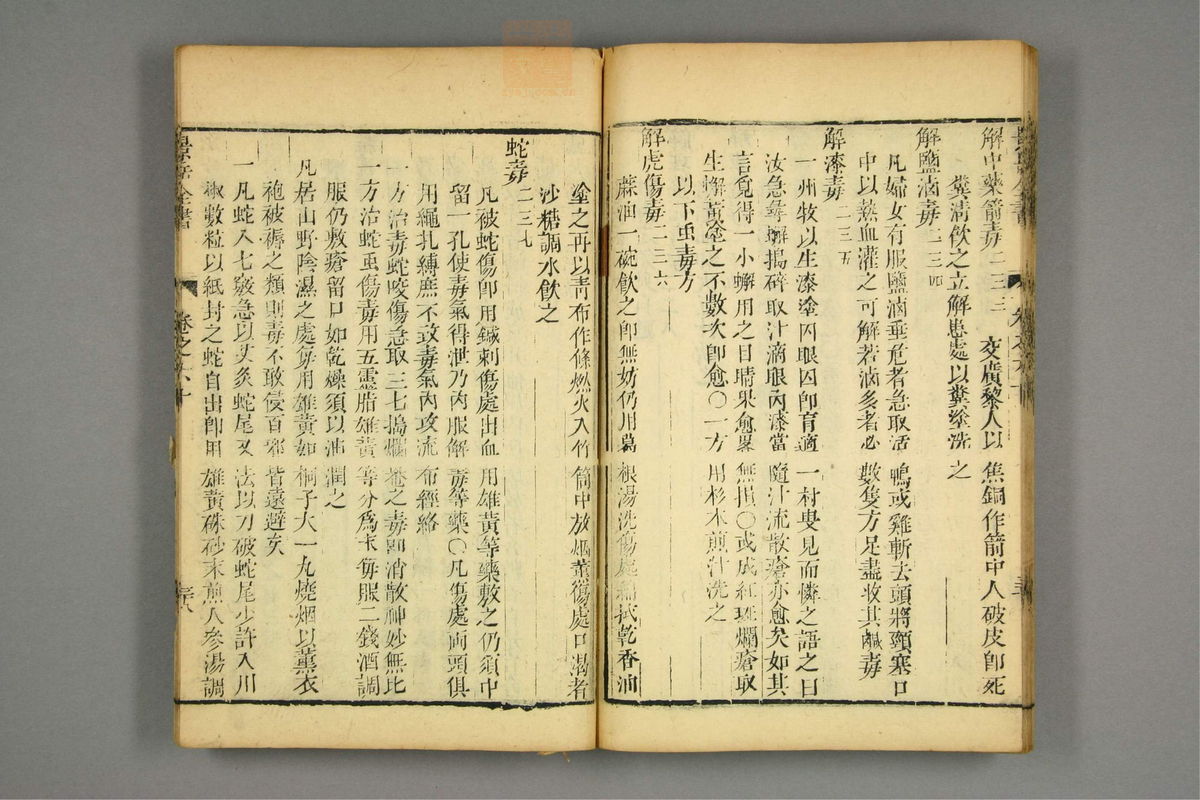 解中藥箭毒二三三　交廣黎人以焦銅作箭中人破皮卽死
糞清飲之立解患處以糞塗洗之
解鹽滷毒二三四
凡婦女有服鹽滷垂危者急取活鴨或雞斬去頭將頸塞口
中以熱血灌之可解若滷多者必數隻方足盡收其鹹毒
解漆毒二三五
一州牧以生漆塗囚眼囚卽盲適一村叟見而憐之語之曰
汝急尋蠏搗碎取汁滴眼內漆當隨汁流散瘡亦愈矣如其
言覓得一小蠏用之目睛果愈畧無損○或成紅斑爛瘡取
生蠏黃塗之不數次卽愈○一方用杉木煎汁洗之
以下虫毒方
解虎傷毒二三六
蔴油一碗飲之卽無妨仍用葛根湯洗傷處綿拭乾香油
塗之再以青布作條燃火入竹筒中放烟薰傷處口渴者
沙糖調水飲之
蛇毒二三七
凡被蛇傷卽用鍼刺傷處出血用雄黃等藥敷之仍須中
留一孔使毒氣得泄乃內服解毒等藥○凡傷處両頭俱
用繩扎縛庶不致毒氣內攻流布經絡
一方治毒蛇咬傷急取三七搗爛罨之毒卽消散神妙無比
一方治蛇虫傷毒用五靈脂雄黃等分爲末每服二錢酒調
服仍敷瘡留口如乾燥須以油潤之
凡居山野陰濕之處每用雄黃如桐子大一丸燒烟以薰衣
袍被褥之類則毒不敢侵百邪皆遠避矣
一凡蛇入七竅急以艾灸蛇尾又法以刀破蛇尾少許入川
椒數粒以紙封之蛇自出卽用雄黃硃砂末煎人參湯調
景岳全書
卷之六十
三六